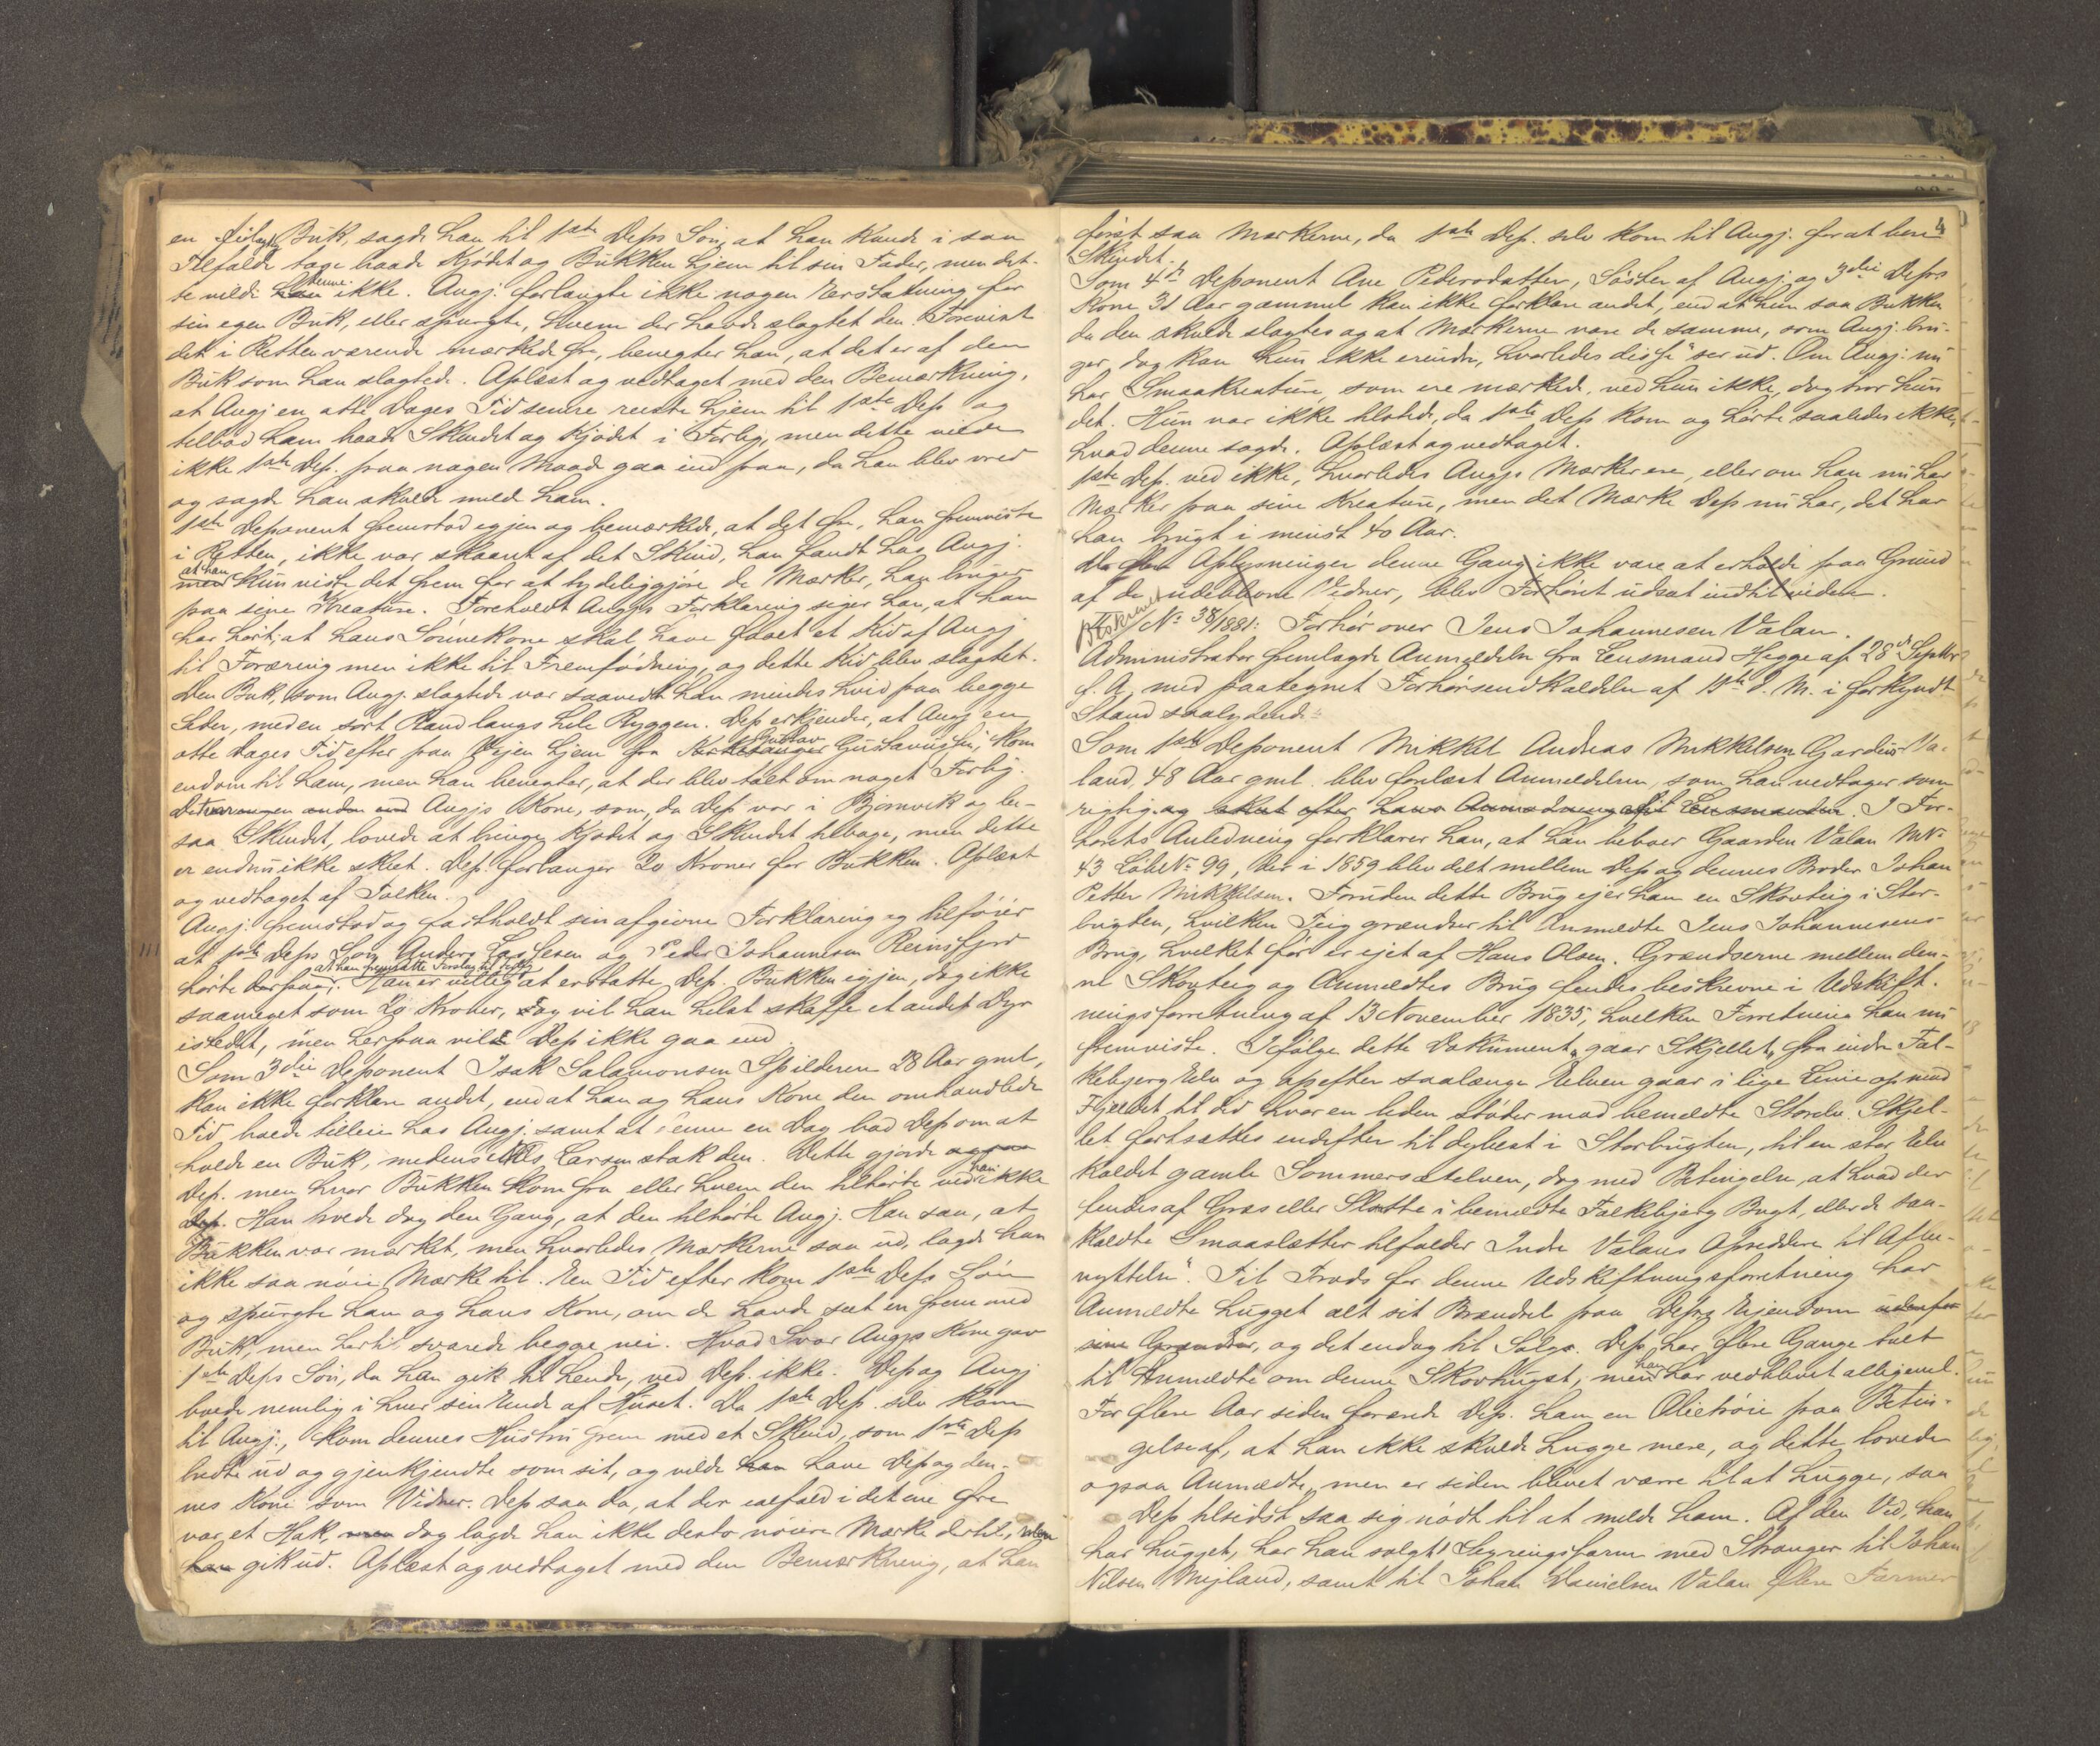 en Buk, sagde han til 1ste Deps Søn, at han kunde i saa
Tilfælde tage baade Kjødet og Bukken hjem til sin Fader, men det-
te vilde denne ikke. Angj. forlangte ikke nogen Erstatning for
sin egen Buk, eller spurgte, hvem der havde slagtet den. Forevist
det i Retten værende mærkede Øre, benegter han, at det er af den
Buk som han slagtede. Oplæst og vedtaget med den Bemærkning,
at Angj en otte Dages Tid senere reiste hjem til 1ste Dep og
tilbød ham baade Skindet og Kjødet i Forlig, men dette vilde
ikke 1ste Dep. paa nogen Maade gaa ind paa, da han blev vred
og sagde han skulde melde ham.
1ste Deponent fremstod igjen og bemærkede, at det Øre, han fremviste
i Retten, ikke var skaaret af det Skind, han fandt hos Angj.
men at han kun viste det frem for at tydeliggjøre de Mærker, han bruger
paa sine Kreature. Foreholdt Angjs Forklaring siger han, at han
har hørt, at hans Sønnekone skal have faaet et Kid af Angj
til Foræring men ikke til Fremfødning, og dette Kid blev slagtet.
Den Buk, som Angj. slagtede var saavidt han mindes hvid paa begge
Sider, med en sort Rand langs hele Ryggen. Dep erkjender, at Angj en
otte Dages Tid efter paa Vejen hjem fra Gustav Gustavussen, kom
endom til ham, men han benegter, at der blev talt om noget Forlig.
Det var ingen anden end Angjs Kone, som, da Dep var i Bjørnvik og be-
saa Skindet, lovede at bringe Kjødet og Skindet tilbage, men dette
er endnu ikke skeet. Dep. forlanger 20 Kroner for Bukken. Oplæst
og vedtaget af Tolken.
Angj. fremstod og fastholdt sin afgivne Forklaring og tilføier
at 1ste Deps Søn Anders Larsen og Peder Johannesen Reinsfjord
hørte at han fremsatte Forslag til Forlig. Han er villig at erstatte Dep. Bukken igjen, dog ikke
saameget som 20 Kroner, dog vil han helst skaffe et andet Dyr
istedet, men herpaa vilde Dep ikke gaa ind.
Som 3die Deponent Isak Salamonsen Spilderen 28 Aar gml,
kan ikke forklare andet, end at han og hans Kone den omhandlede
Tid boede tilleie hos Angj. samt at denne en Dag bad Dep om at
holde en Buk, medens Nils Larsen stak den. Dette gjorde ogsaa
Dep. men hvor Bukken kom fra eller hvem den tilhørte ved han ikke
Dep. Han troede dog den Gang, at den tilhørte Angj. Han saa, at
Bukken var mærket, men hvorledes Mærkerne saa ud, lagde han
ikke saa nøie Mærke til. En Tid efter kom 1ste Deps Søn
og spurgte ham og hans Kone, om de havde seet en fremmed
Buk, men hertil svarede begge nei. Hvad Svar Angjs Kone gav
1ste Deps Søn, da han gik til hende, ved Dep. ikke. Dep og Angj
boede nemlig i hver sin Ende af Huset. Da 1ste Dep. selv kom
til Angj., kom dennes Hustru frem med et Skind, som 1ste Dep
bredte ud og gjenkjendte som sit, og vilde han have Dep og den-
nes Kone som Vidner. Dep saa da, at der ialfald i det ene Øre
var et Hak, men dog lagde han ikke desto nøiere Mærke dertil, men
han gik ud. Oplæst og vedtaget med den Bemærkning, at han
4
først saa Mærkerne, da 1ste Dep. selv kom til Angj. for at bese
Skindet.
Som 4de Deponent Ane Pedersdatter, Søster af Angj. og 3die Deps
Kone 31 Aar gammel kan ikke forklare andet, end at hun saa Bukken
da den skulde slagtes og at Mærkerne vare de samme, som Angj. bru-
ger, dog kan hun ikke erindre, hvorledes disse ser ud. Om Angj. nu
har Smaakreature, som ere mærkede, ved hun ikke, dog tror hun
det. Hun var ikke tilstede, da 1ste Dep kom og hørte saaledes ikke,
hvad denne sagde. Oplæst og vedtaget.
1ste Dep. ved ikke, hvorledes Angjs Mærker ere, eller om han nu har
Mærker paa sine Kreature, men det Mærke Dep nu har, det har
han brugt i mindst 40 Aar.
Da flere Oplysninger denne Gang ikke vare at erholde paa Grund
af de udeblevne Vidner, blev Forhøret udsat indtil videre.
Beskrevet
No 38/1881: Forhør over Jens Johannesen Valan.
Administrator fremlagde Anmeldelse fra Lensmand Hegge af 28de Septbr
f. A. med paategnet Forhørsindkaldelse af 10de d. M. i forkyndt
Stand saalydende:
Som 1ste Deponent Mikkel Andreas Mikkelsen Gardeier Va-
land, 48 Aar gml. blev forelæst Anmeldelsen, som han vedtager som
rigtig og skeet efter hans Anmodning til Lensmanden. I For-
hørets Anledning forklarer han, at han beboer Gaarden Valan MNo
43 LøbeNo 99, der i 1859 blev delt mellem Dep og dennes Broder Johan
Petter Mikkelsen. Foruden dette Brug ejer han en Skovteig i Stor-
bugten, hvilken Teig grændser til Anmeldte Jens Johannesens
Brug, hvilket før er ejet af Hans Olsen. Grændserne mellem den-
ne Skovteig og Anmeldtes Brug findes beskrevne i Udskift-
ningsforretning af 13 November 1835, hvilken Forretning han nu
fremviste. Ifølge dette Dokument „gaar Skjellet, fra indre Fal-
kebjerg Elv og opefter saalænge Elven gaar i lige Linie op mod
Fjeldet til did hvor en liden støder mod bemeldte Storelv. Skjel-
let fortsættes endefter til dybest i Storbugten, til en stor Elv
kaldet gamle Sommersætelven, dog med Betingelse, at hvad der
findes af Græs eller Slotte i bemeldte Falkebjerg Bugt, eller de saa-
kaldte Smaaslætter tilfalder Indre Valans Opsiddere til Afbe-
nyttelse“. Til Trods for denne Udskiftningsforretning har
Anmeldte hugget alt sit Brændsel paa Deps Eiendom udenfor
sine Grændser, og det endog til Salgs. Dep har flere Gange talt
til Anmeldte om denne Skovhugst, men han har vedblevet alligevel.
For flere Aar siden forærede Dep. ham en Olietrøie paa Betin-
gelse af, at han ikke skulde hugge mere, og dette lovede
ogsaa Anmeldte, men er siden blevet værre til at hugge, saa
Dep tilsidst saa sig nødt til at melde ham. Af den Ved, han
har hugget, har han solgt 1 Ægringsfarm med Stranger til Johan
Nilsen Mejland, samt til Johan Danielsen Valan flere Farmer